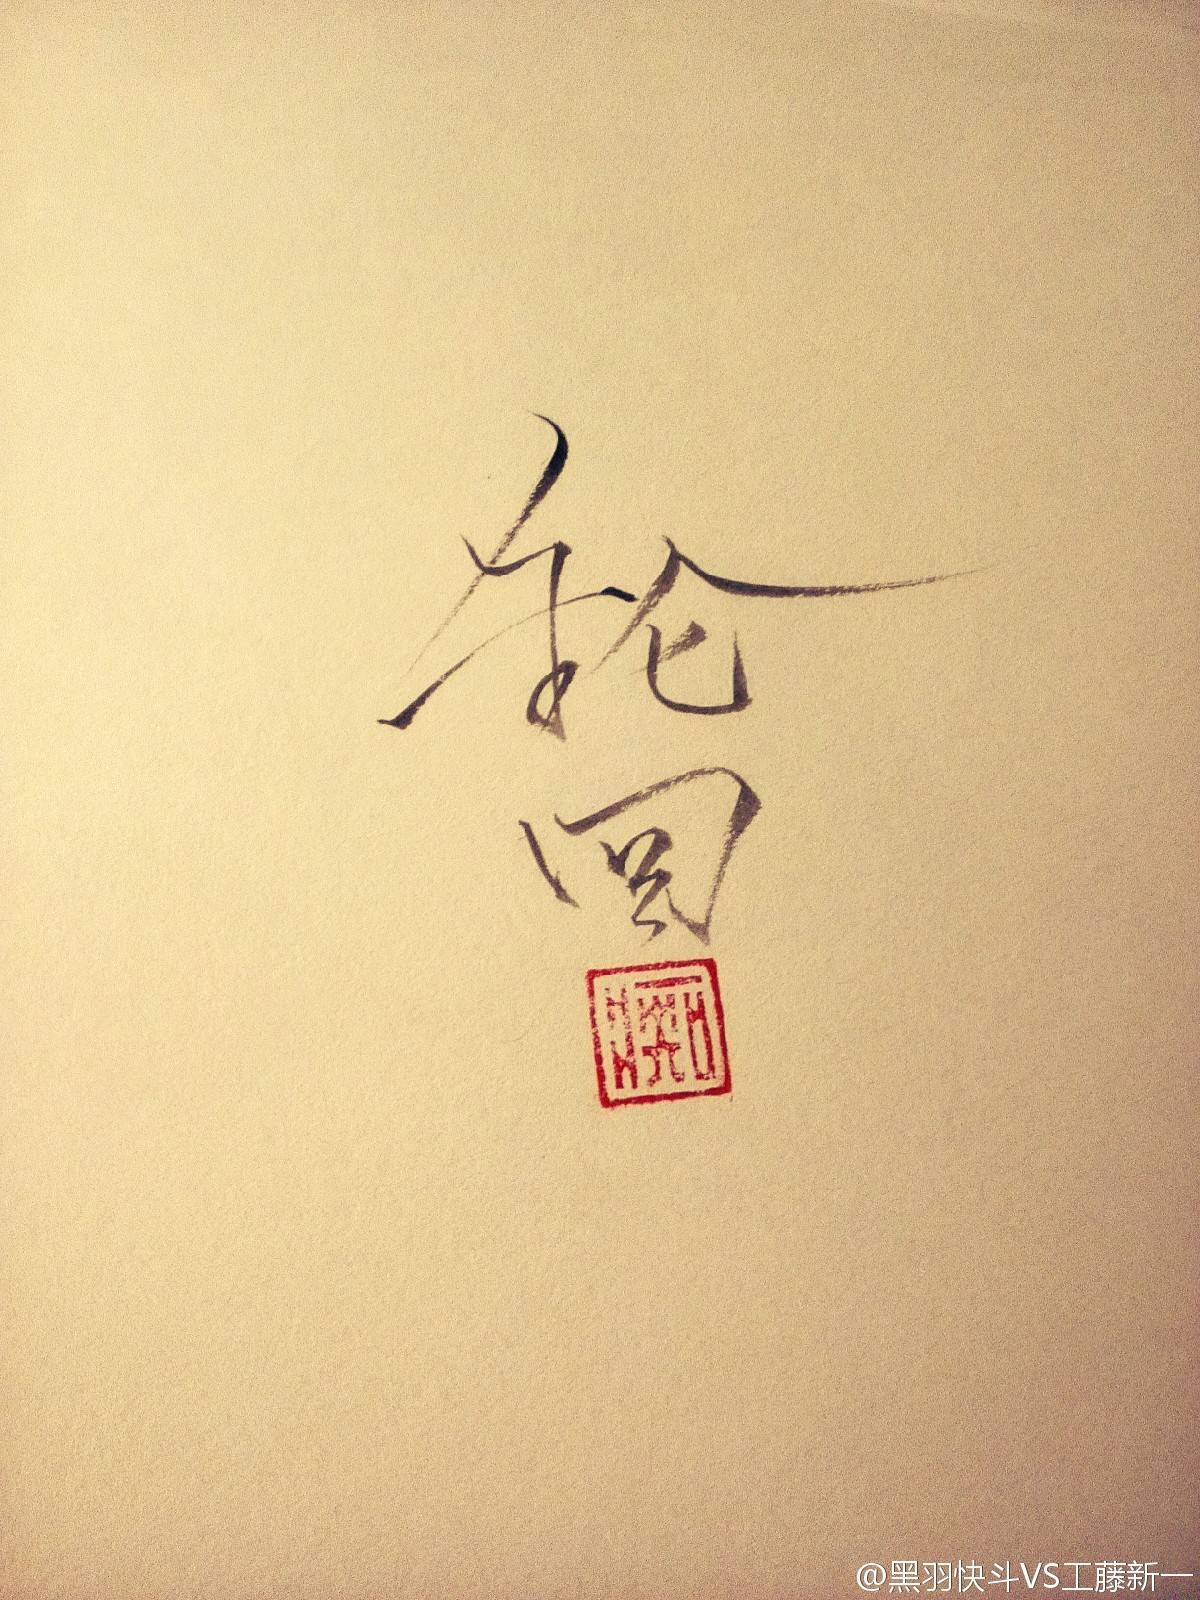 轮
回
@黑羽快斗VS工藤新一